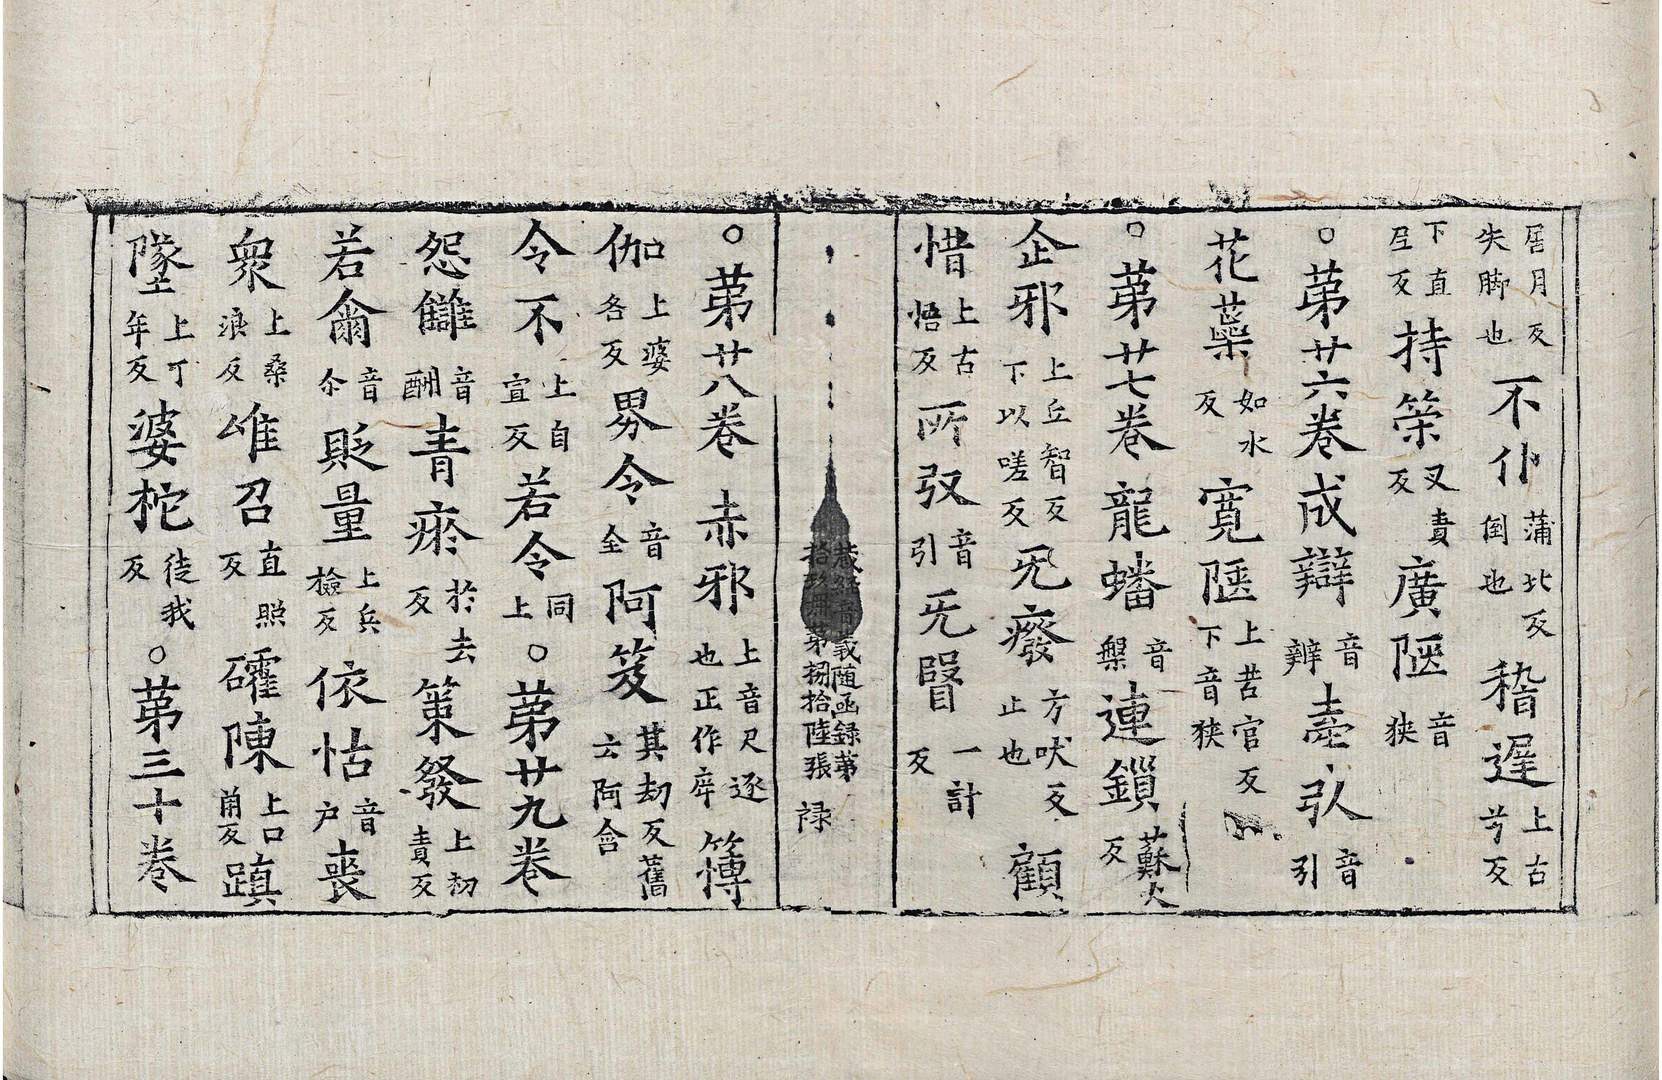 居月反失脚也不仆蒲北反倒也稽遲上古兮反
下直𡰱反持䇿叉責反廣陿音狹
○苐廿六卷成辯音辨𡔷㧈音引
花蘂如水反寬陿上苦官反下音狹
○苐廿七卷龍蟠音槃連鎻蘇火反
企邪上丘智反下以嗟反旡癈方吠反止也顧
惜上古悟反所㧈音引旡瞖一計反
藏經音義随函録苐拾玖册苐捌拾陸張 禄
○苐廿八卷赤邪上音尺逐也正作㡿簙
伽上婆各反男令音全阿笈其劫反舊云阿含
令不上自宣反若令同上○苐廿九卷
怨讎音酬青瘀於去反䇿發上初責反
若尒音尒貶量上兵檢反依怙音户喪
衆上桑浪反唯召直照反礭陳上口角反蹎
墜上丁年反婆柁徒我反○苐三十卷